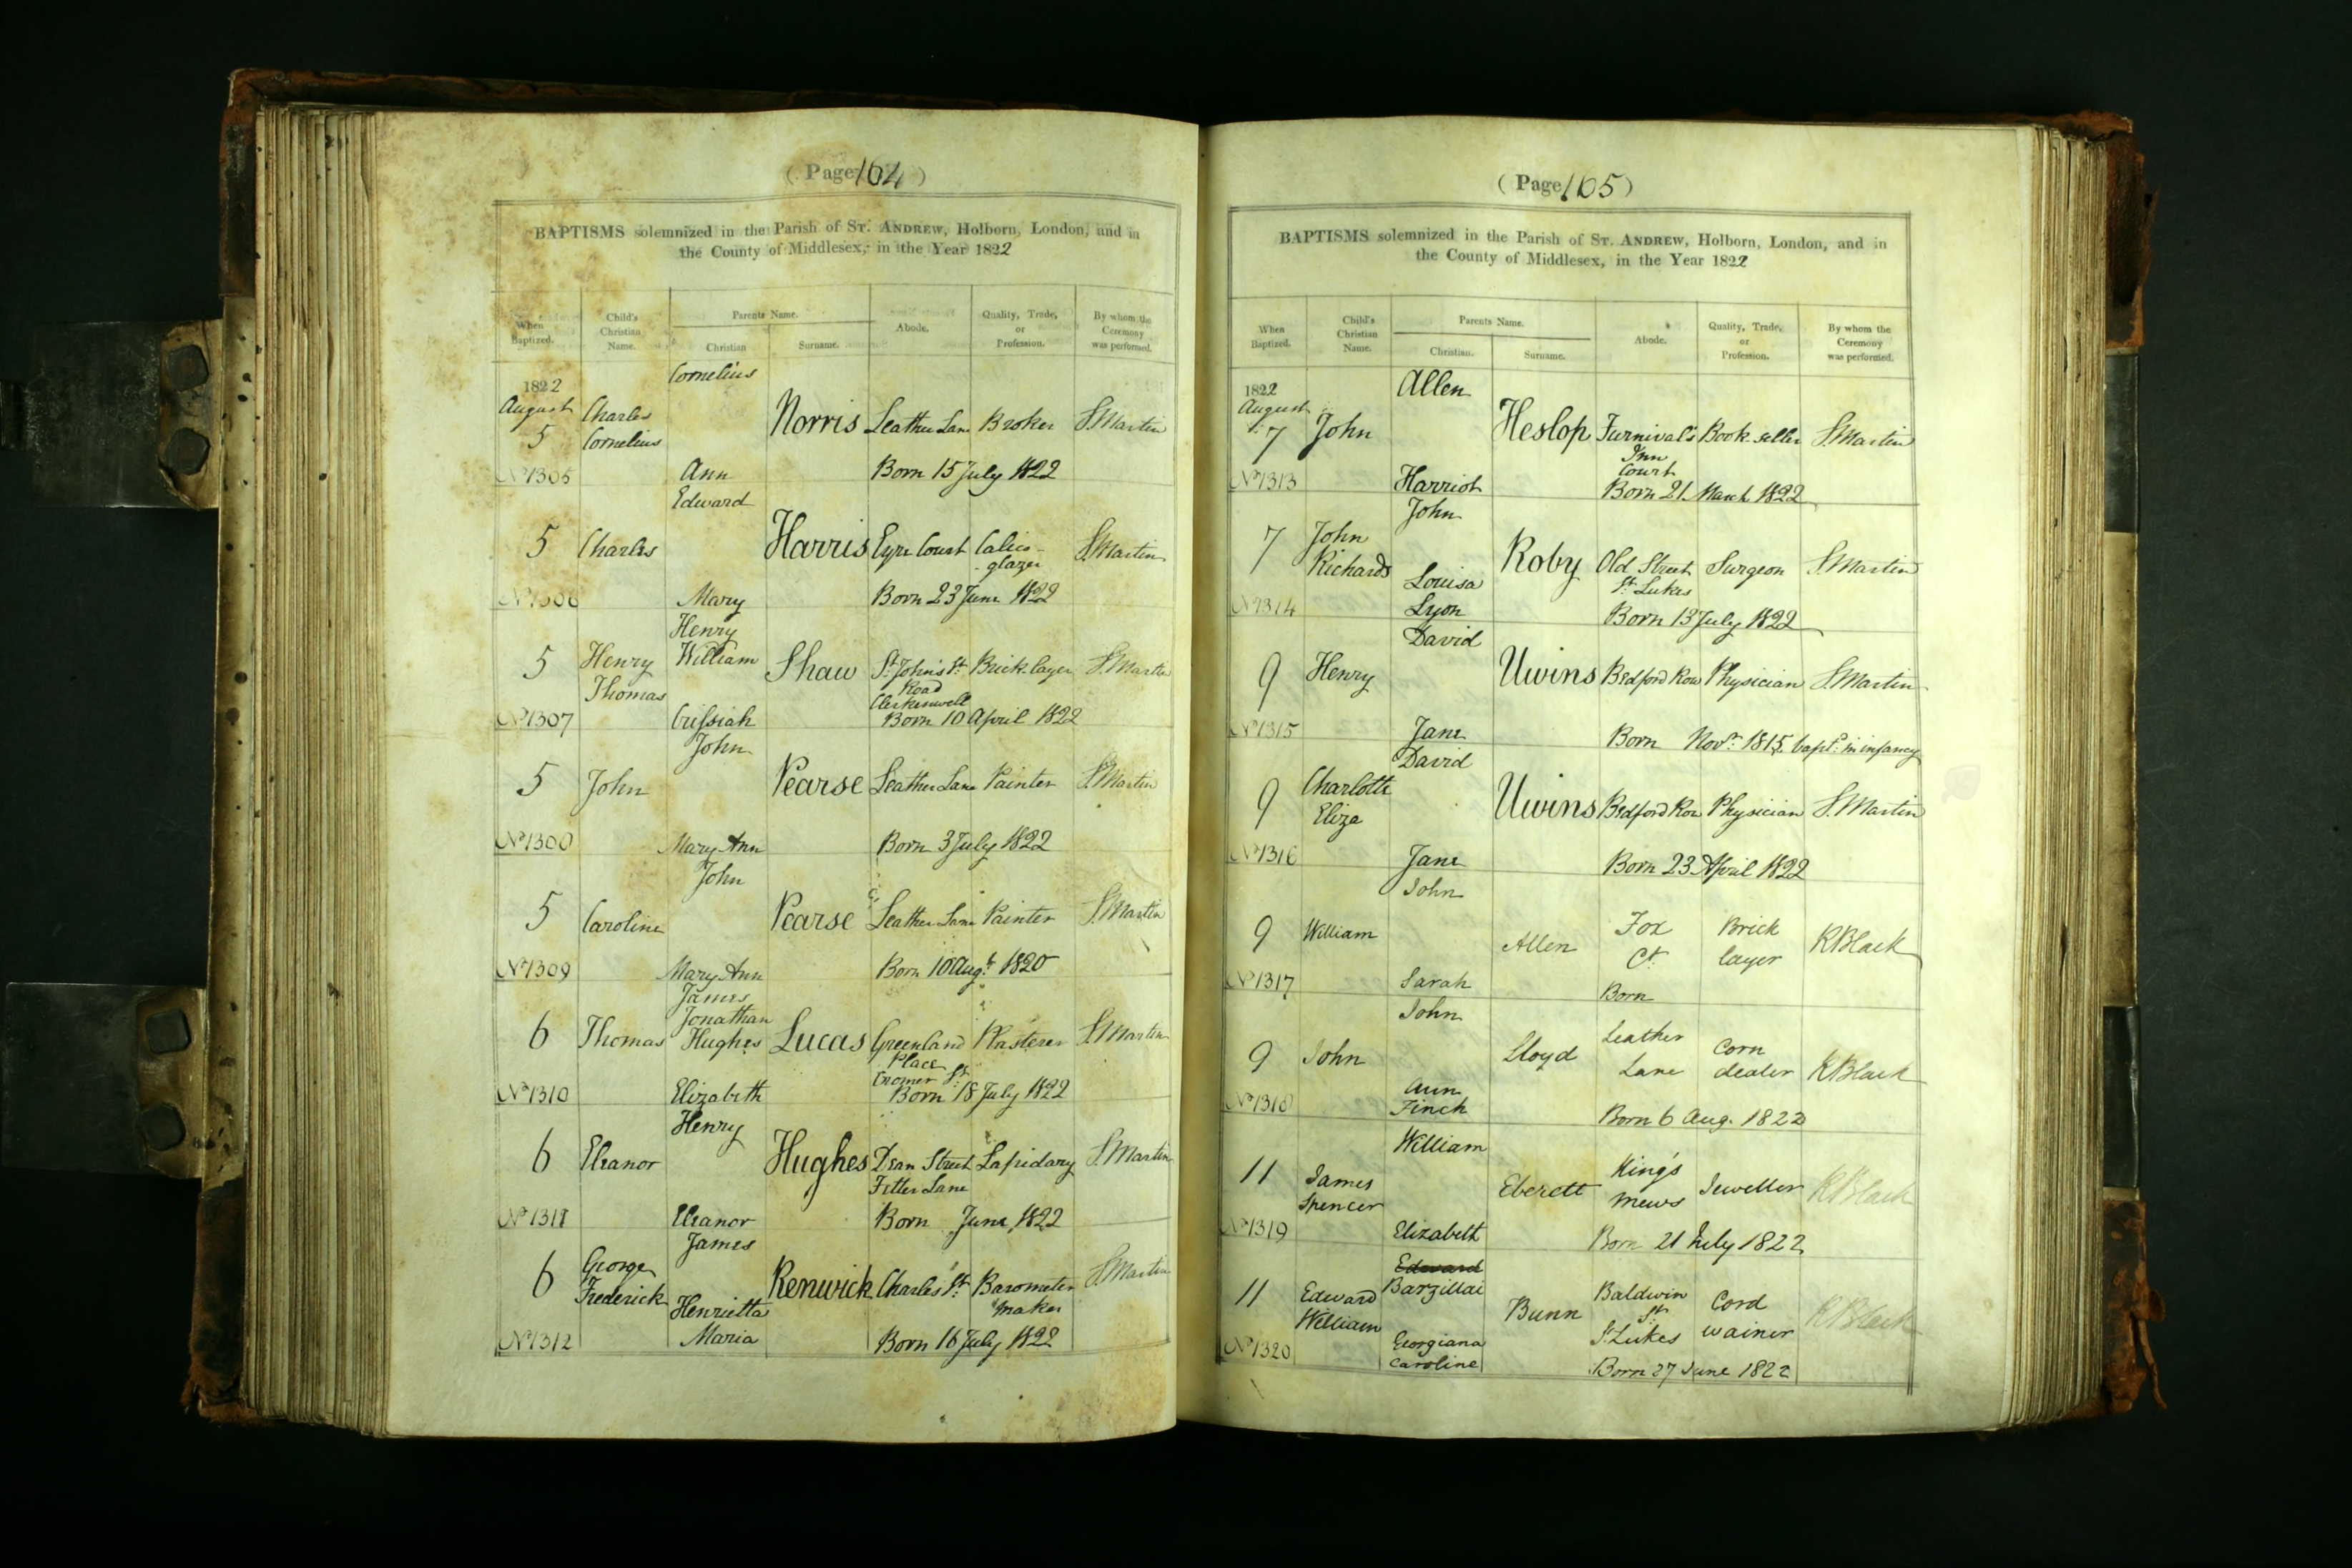 ( Page 164 )
BAPTISMS solemnized in the Parish of ST. ANDREW, Holborn, London, and in
the County of Middlesex, in the Year 1822
When Baptized. Child's Christian Name. Parents Name. Christian Surname. Abode. Quality, Trade, or Profession. By whom the Ceremony was performed.
1822 Cornelius
August Charles Norris Leather Lane Broker S. Martin
5 Cornelius
No 1305 Ann Born 15 July 1822
Edward
5 Charles Harris Eyre Court Calico- S. Martin
glazer
No 1306 Mary Born 23 June 1822
Henry
5 Henry William Shaw St. John's St. Bricklayer S. Martin
Thomas Road
Clerkenwell
No 1307 Crissiah Born 10 April 1822
John
5 John Pearse Leather Lane Painter S. Martin
No 1308 Mary Ann Born 3 July 1822
John
5 Caroline Pearse Leather Lane Painter S. Martin
No 1309 Mary Ann Born 10 Augt. 1820
James
Jonathan
6 Thomas Hughes Lucas Greenland Plasterer S. Martin
Place
Cromer St.
No 1310 Elizabeth Born 18 July 1822
Henry
6 Eleanor Hughes Dean Street Lapidary S. Martin
Fetter Lane
No 1311 Eleanor Born June 1822
James
6 George Renwick Charles St. Barometer S. Martin
Frederick Henrietta maker
No 1312 Maria Born 16 July 1822
( Page 165 )
BAPTISMS solemnized in the Parish of ST. ANDREW, Holborn, London, and in
the County of Middlesex, in the Year 1822
When Baptized. Child's Christian Name. Parents Name. Christian. Surname. Abode. Quality, Trade, or Profession. By whom the Ceremony was performed.
1822 Allen
August
7 John Heslop Furnival's Book seller S. Martin
Inn
Court
No 1313 Harriot Born 21 March 1822
John
7 John Roby Old Street Surgeon S. Martin
Richards Louisa St. Lukes
No 1314 Lyon Born 13 July 1822
David
9 Henry Uwins Bedford Row Physician S. Martin
No 1315 Jane Born Novr. 1815. bapt.d in infancy
David
9 Charlotte Uwins Bedford Row Physician S. Martin
Eliza
No 1316 Jane Born 23 April 1822
John
9 William Allen Fox Brick R Black
Ct. layer
No 1317 Sarah Born
John
9 John Lloyd Leather Corn R Black
Lane dealer
Ann
No 1318 Finch Born 6 Aug. 1822
William
11 James Everett King's Jeweller R Black
Spencer mews
No 1319 Elizabeth Born 21 July 1822
Edward
11 Edward Barzillai Bunn Baldwin Cord R Black
William St. wainer
Georgiana St. Lukes
No 1320 Caroline Born 27 June 1822